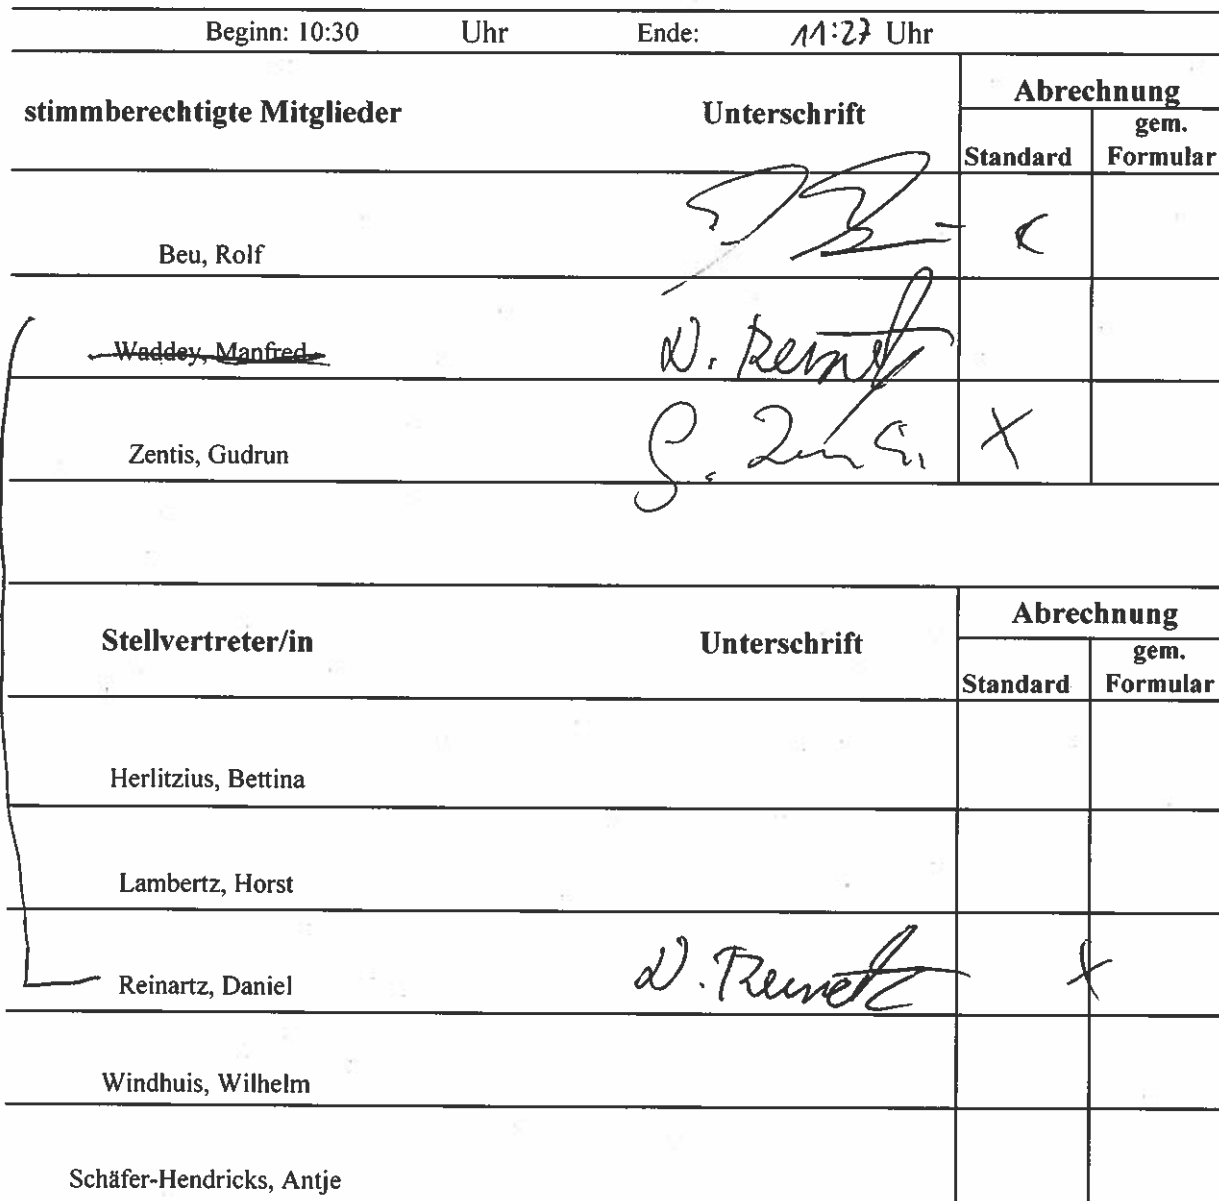 Beginn: 10:30 Uhr Ende: 11:27 Uhr
stimmberechtigte Mitglieder Unterschrift Abrechnung
Standard gem. Formular
Beu, Rolf
Waddey, Manfred D. Reinartz
Zentis, Gudrun G. Zentis X
Stellvertreter/in Unterschrift Abrechnung
Standard gem. Formular
Herlitzius, Bettina
Lambertz, Horst
Reinartz, Daniel D. Reinartz X
Windhuis, Wilhelm
Schäfer-Hendricks, Antje